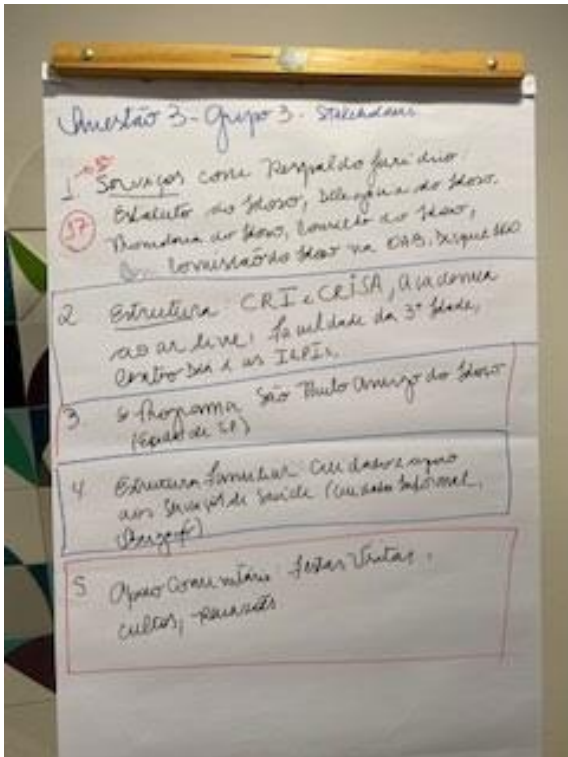 Questão 3 - Grupo 3 - Stakeholders
1 Serviços com Respaldo Jurídico
Estatuto do Idoso, Delegacia do Idoso.
17 Promotoria do Idoso, Conselho do Idoso,
Comissão do Idoso na OAB. Disque 100
2 Estrutura: CRI e CRISA, academia
ao ar livre, faculdade da 3ª Idade,
Centro Dia e as ILPIs.
3. Programa São Paulo Amigo do Idoso
(Estado de SP)
4 Estrutura familiar: Cuidados e apoio
aos Serviços de Saúde (cuidador Informal,
5 Apoio Comunitário: festas Visitas,
cultos,